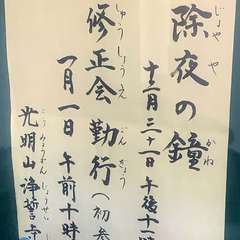 除夜の鐘
じょや かね
十二月三十一日 午後十一
修正会 勤行(初参
しゅうしょうえ ごんぎょう
一月一日 午前十時
光明山 浄誓寺
こうみょうざん じょうせい